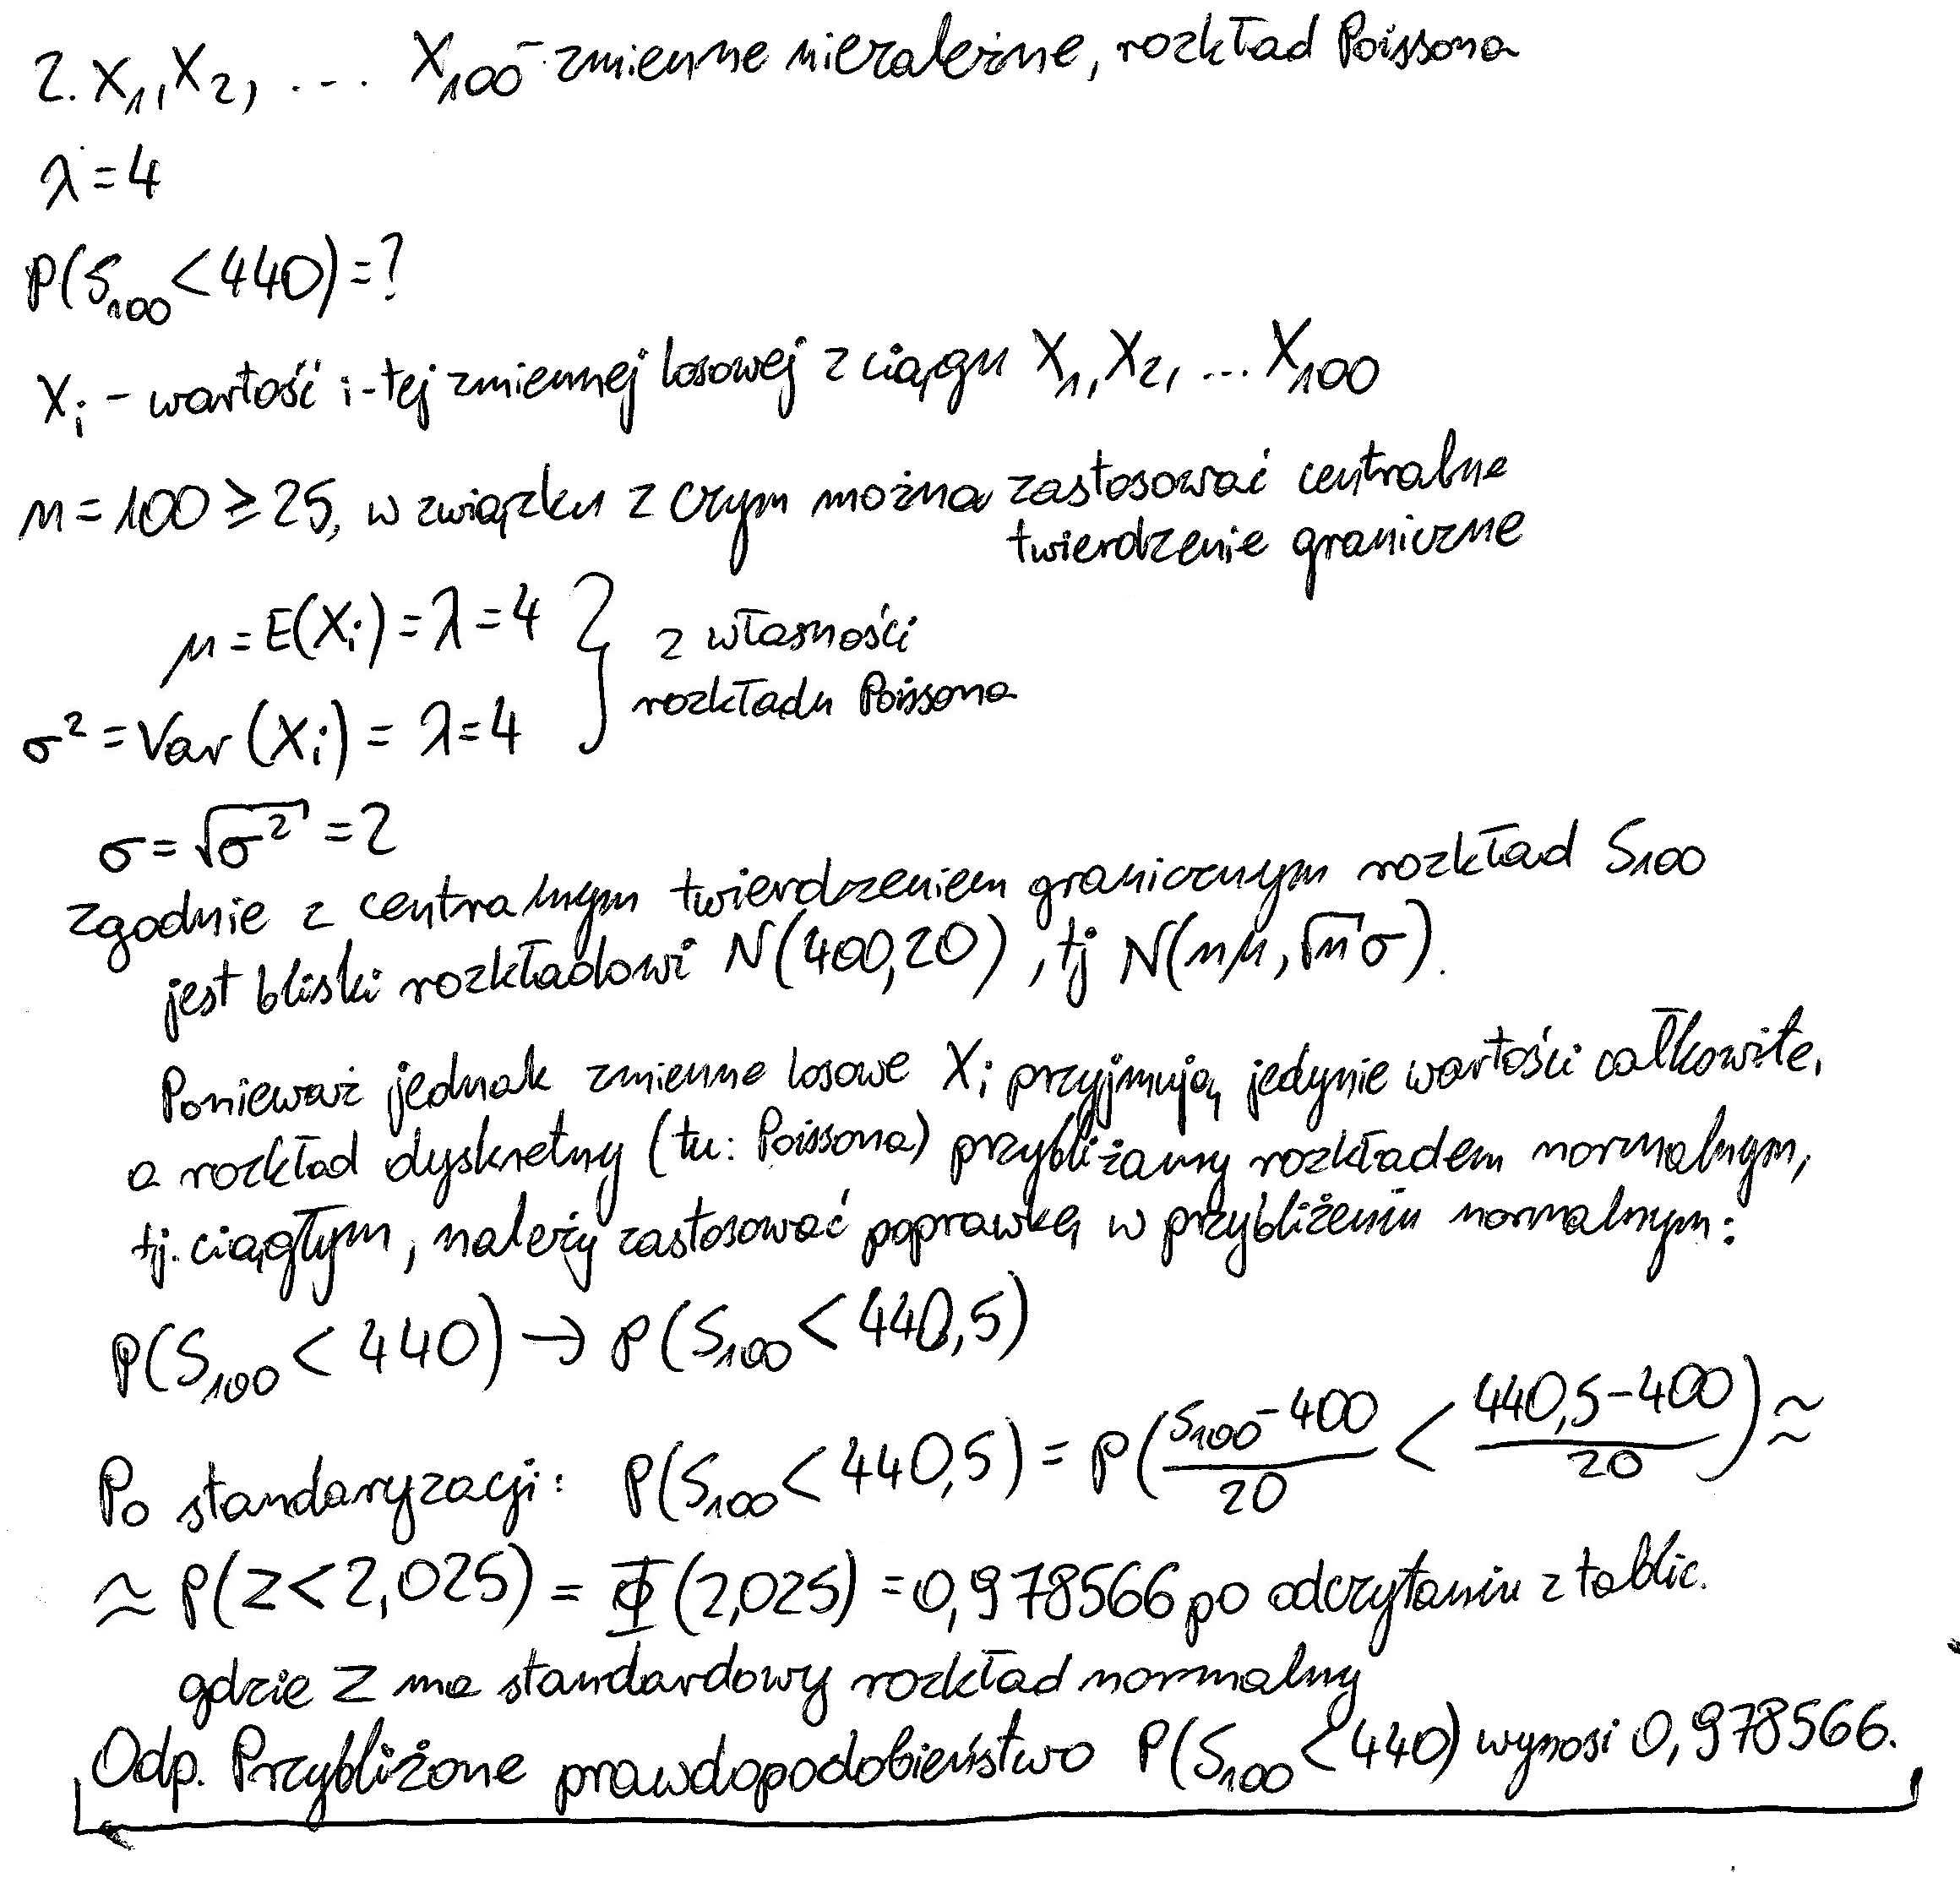 2. X₁, X₂, ... X₁₀₀ - zmienne niezależne, rozkład Poissona
λ = 4
P(S₁₀₀ < 440) = ?
Xᵢ - wartość i-tej zmiennej losowej z ciągu X₁, X₂, ... X₁₀₀
n = 100 ≥ 25, w związku z czym można zastosować centralne
twierdzenie graniczne
μ = E(Xᵢ) = λ = 4 } z własności
σ² = Var(Xᵢ) = λ = 4 } rozkładu Poissona
σ = √σ² = 2
zgodnie z centralnym twierdzeniem granicznym rozkład S₁₀₀
jest bliski rozkładowi N(400,20), tj N(nμ, √n σ).
Ponieważ jednak zmienne losowe Xᵢ przyjmują jedynie wartości całkowite,
a rozkład dyskretny (tu: Poissona) przybliżamy rozkładem normalnym,
tj. ciągłym, należy zastosować poprawkę w przybliżeniu normalnym:
P(S₁₀₀ < 440) → P(S₁₀₀ < 440,5)
Po standaryzacji: P(S₁₀₀ < 440,5) = P((S₁₀₀ - 400)/20 < (440,5 - 400)/20) ≈
≈ P(Z < 2,025) = Φ(2,025) = 0,978566 po odczytaniu z tablic.
gdzie Z ma standardowy rozkład normalny
Odp. Przybliżone prawdopodobieństwo P(S₁₀₀ < 440) wynosi 0,978566.